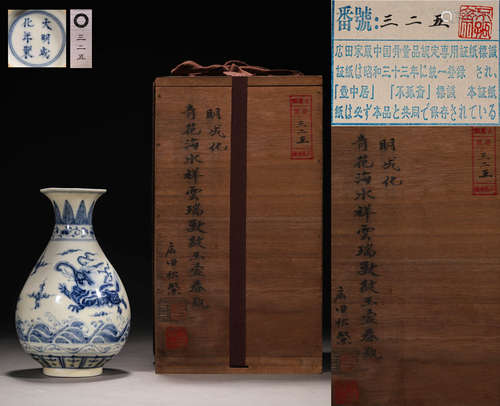 大明成
化年製
三二五
番號:三二五
広田家蔵中国骨董品認定専用証紙標識
証紙は昭和三十三年に統一登録 され、
「壺中居」 「不孤斎」標識 本証紙
紙は必ず本品と共同で保存されている
三二五
明成化
青花海水祥雲瑞獸紋玉壺春瓶
広田松繁
三二五
明成化
青花海水祥雲瑞獸紋玉壺春瓶
広田松繁